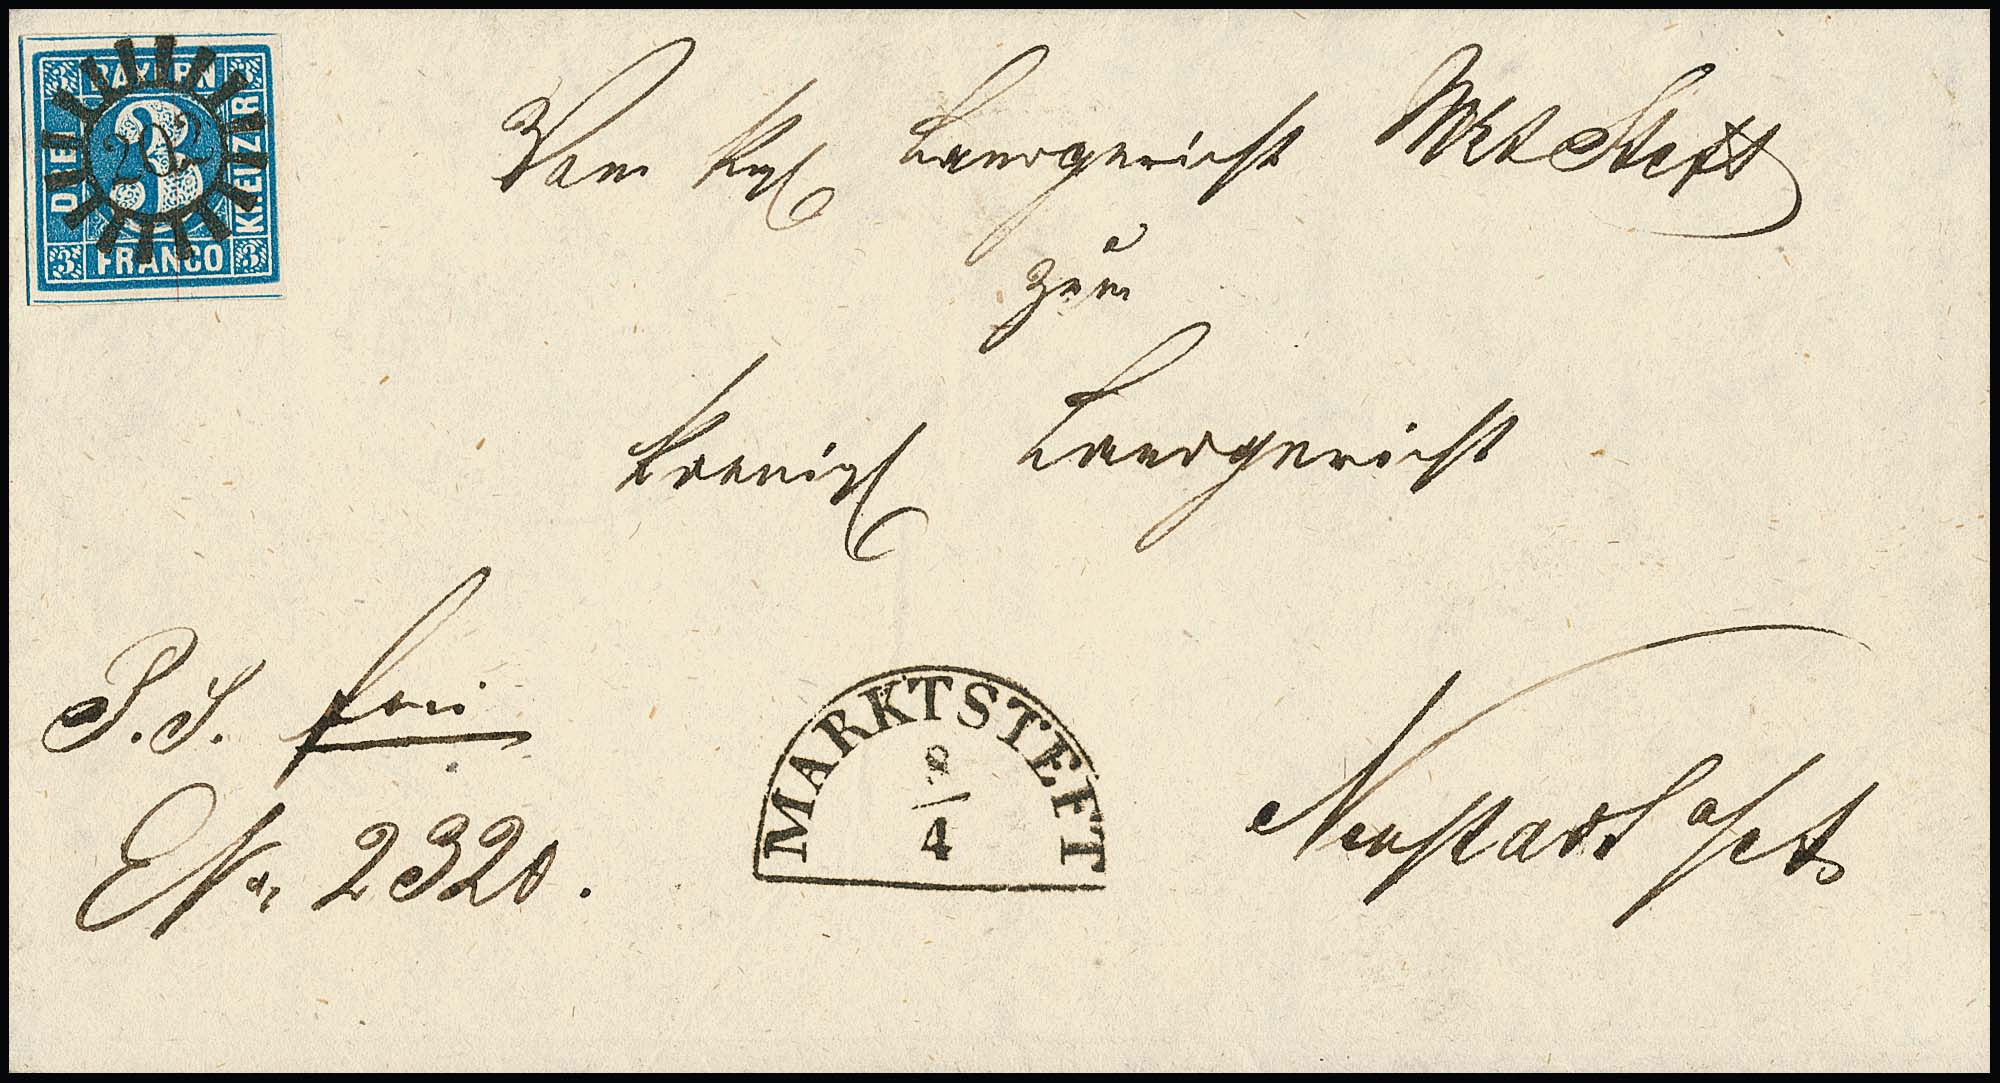 BAYERN
3 3
DREI 3 KREUZER
202
3 FRANCO 3
Vom Kgl Landgericht Mkt Steft
zum
Koenigl Landgericht
P. S. frei
ENr. 2320.
MARKTSTEFT
8
4
Neustadt a/